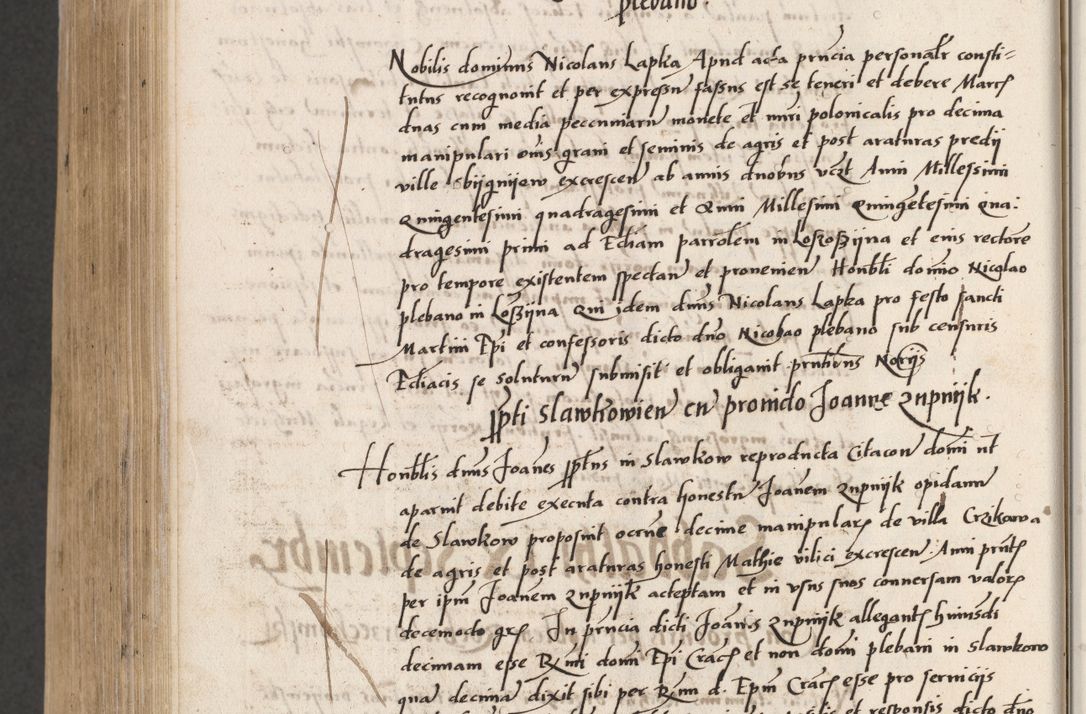 plebano.
Nobilis dominus Nicolaus Lapka Apud acta pn̄cia personalr̄ consti-
tutus recognouit et per expressu fassus est se teneri et debere Marcs
duas cum media peccuniaru monete et nūri polonicalis pro decima
manipulari oīnis grani et seminis de agris et post araturas predii
ville excrescen ab annis duobus vcz̄t Anni Millessimi
Quingentesimi quadragesimi et Anni Millesimi Quingētesimi Qua:
dragesimi primi ad Ecc̄liam parrolem in et eius rectore
pro tempore existentem spectan̄ et prouenien̄ Honbl̄i domīo Nicolao
plebano in Qui idem dn̄us Nicolaus Lapka pro festo sancti
Martini Ep̄i et confessoris dicto dn̄o Nicolao plebano sub censuris
Ecc̄liacis se soluturu submisit et obligauit prn̄tibus Norijs
pp̄ti Slawkowien̄ cu prouido Joanne zupnijk.
Honbl̄is dn̄us Joanes pp̄tus in Slawkow reproducta Citacon̄ domi ut̄
aparuit debite executa contra honestu Joanem zupnijk opidanu
de Slawkow proposuit decime manipulars de villa Czikowa
de agris et post araturas honesti Mathie vilici excrescen. Anni pn̄tis
per ip̄m Joanem zupnijk acteptam et in vsus suos conuersam valors
decemocto grs̄ In pn̄cia dicti Joanis zupnijk allegants huiusdi
decimam esse Rmi domi Ep̄i Cracs et non domi plebani in Slawkow
qua decima dixit sibi per Rmu d. Ep̄m Cracs esse pro seruicijs
et responsis dicto dn̄o